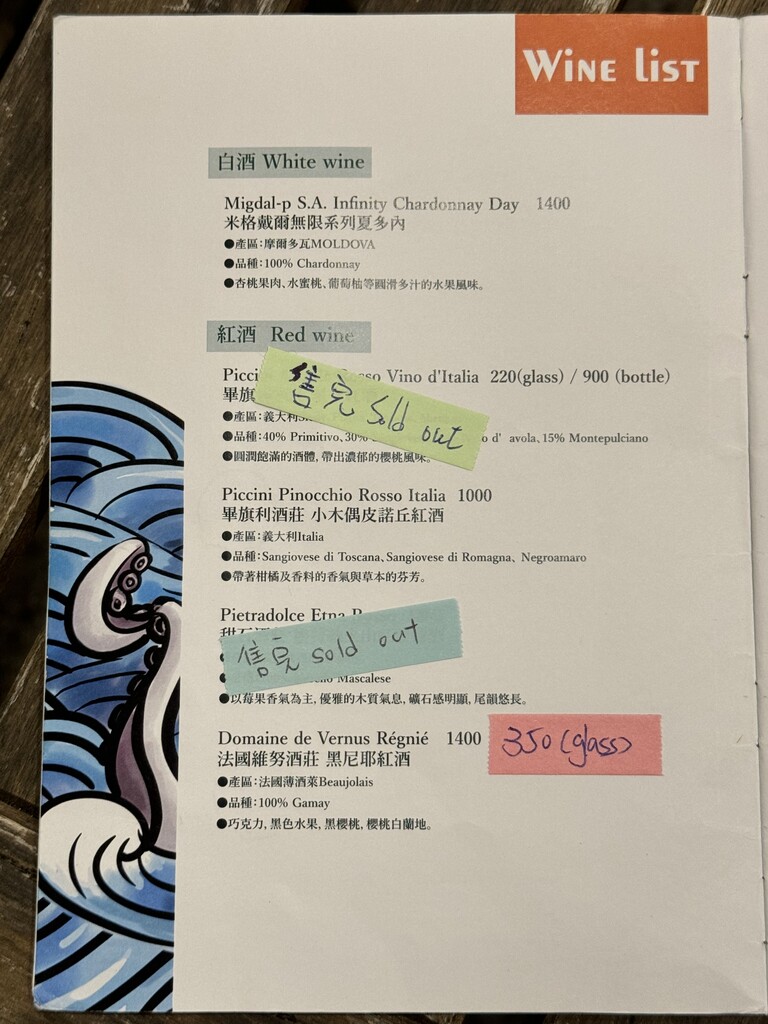 WINE LIST
白酒 White wine
Migdal-p S.A. Infinity Chardonnay Day 1400
米格戴爾無限系列夏多內
●產區:摩爾多瓦MOLDOVA
●品種:100% Chardonnay
●杏桃果肉、水蜜桃、葡萄柚等圓滑多汁的水果風味。
紅酒 Red wine
Vino d'Italia 220(glass) / 900 (bottle)
畢旗
售完 sold out
●產區:義大利
●品種:40% Primitivo, 30% d' avola, 15% Montepulciano
●圓潤飽滿的酒體, 帶出濃郁的櫻桃風味。
Piccini Pinocchio Rosso Italia 1000
畢旗利酒莊 小木偶皮諾丘紅酒
●產區:義大利Italia
●品種:Sangiovese di Toscana、Sangiovese di Romagna、Negroamaro
●帶著柑橘及香料的香氣與草本的芬芳。
Pietradolce Etna
售完 sold out
Mascalese
●以莓果香氣為主, 優雅的木質氣息, 礦石感明顯, 尾韻悠長。
Domaine de Vernus Régnié 1400 350 (glass)
法國維努酒莊 黑尼耶紅酒
●產區:法國薄酒萊Beaujolais
●品種:100% Gamay
●巧克力, 黑色水果, 黑櫻桃, 櫻桃白蘭地。